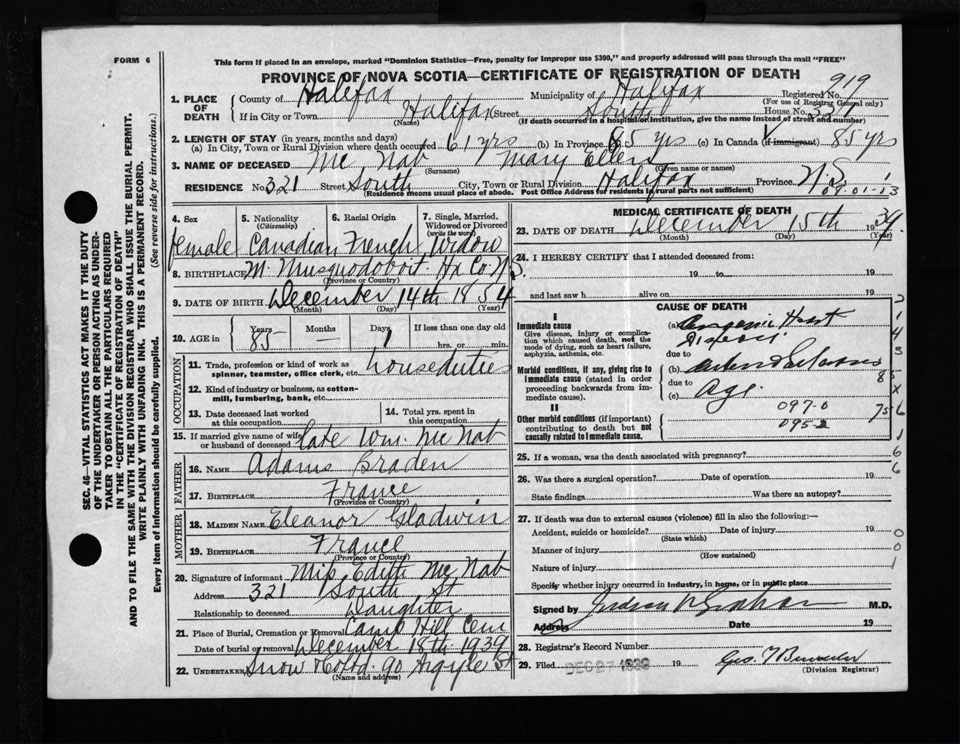 FORM 6
This form if placed in an envelope, marked "Dominion Statistics—Free, penalty for improper use $300," and properly addressed will pass through the mail "FREE"
PROVINCE OF NOVA SCOTIA—CERTIFICATE OF REGISTRATION OF DEATH
919
1. PLACE OF DEATH County of Halifax Municipality of Halifax Registered No.
(For use of Registrar General only)
If in City or Town Halifax Street South House No. 321
(Name) (If death occurred in hospital or institution, give the name instead of street and number)
2. LENGTH OF STAY (in years, months and days)
(a) In City, Town or Rural Division where death occurred 61 yrs (b) In Province 85 yrs (c) In Canada (if immigrant) 85 yrs
3. NAME OF DECEASED Mc Nab Mary Ellen
(Surname) (Given name or names)
RESIDENCE No. 321 Street South City, Town or Rural Division Halifax Province N.S.
(Residence means usual place of abode. Post Office Address for residents in rural parts not sufficient)
01-01-13
4. Sex 5. Nationality (Citizenship) 6. Racial Origin 7. Single, Married, Widowed or Divorced (write the word)
female Canadian French Widow
8. BIRTHPLACE M. Musquodoboit Hx Co. N.S.
(Province or Country)
9. DATE OF BIRTH December 14th 1854
(Month) (Day) (Year)
10. AGE in Years Months Days If less than one day old
85 — 1 hrs. or min.
OCCUPATION
11. Trade, profession or kind of work as spinner, teamster, office clerk, etc. houseduties
12. Kind of industry or business, as cotton-mill, lumbering, bank, etc.
13. Date deceased last worked at this occupation 14. Total yrs. spent in this occupation
15. If married give name of wife or husband of deceased late Wm. Mc Nab
FATHER
16. Name Adams Braden
17. Birthplace France
(Province or Country)
MOTHER
18. MAIDEN NAME Eleanor Gladwin
19. Birthplace France
(Province or Country)
20. Signature of informant Miss Edith Mc Nab
Address 321 South St
Relationship to deceased Daughter
21. Place of Burial, Cremation or Removal Camp Hill Cem
Date of burial or removal December 18th 1939
22. UNDERTAKER Snow &Co Ltd. 90 Argyle St
(Name and address)
MEDICAL CERTIFICATE OF DEATH
23. DATE OF DEATH December 15th 1939
(Month) (Day) (Year)
24. I HEREBY CERTIFY that I attended deceased from:
19 to 19
and last saw h alive on 19
CAUSE OF DEATH
I
Immediate cause
Give disease, injury or complication which caused death, not the mode of dying, such as heart failure, asphyxia, asthenia, etc.
(a) Heart
due to
Morbid conditions, if any, giving rise to immediate cause (stated in order proceeding backwards from immediate cause).
(b)
due to
(c) Age
097-0
095-2
II
Other morbid conditions (if important) contributing to death but not causally related to immediate cause.
2
1
4
3
85
X
756
1
6
6
25. If a woman, was the death associated with pregnancy?
26. Was there a surgical operation? Date of operation 19
State findings Was there an autopsy?
27. If death was due to external causes (violence) fill in also the following:—
Accident, suicide or homicide? Date of injury 19
(State which)
Manner of injury
(How sustained)
Nature of injury
Specify whether injury occurred in industry, in home, or in public place
0
0
1
Signed by M.D.
Address Date 19
28. Registrar's Record Number
29. Filed DEC 27 1939 19
(Division Registrar)
SEC. 46—VITAL STATISTICS ACT MAKES IT THE DUTY
OF THE UNDERTAKER OR PERSON ACTING AS UNDERTAKER TO OBTAIN ALL THE PARTICULARS REQUIRED
IN THE "CERTIFICATE OF REGISTRATION OF DEATH"
AND TO FILE THE SAME WITH THE DIVISION REGISTRAR WHO SHALL ISSUE THE BURIAL PERMIT.
WRITE PLAINLY WITH UNFADING INK. THIS IS A PERMANENT RECORD.
Every item of information should be carefully supplied. (See reverse side for instructions.)